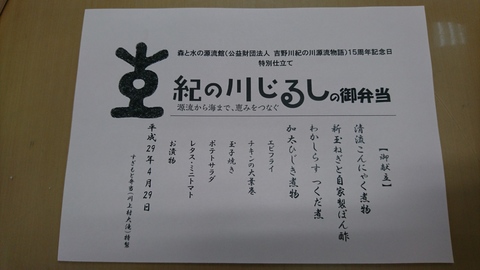 森と水の源流館(公益財団法人 吉野川紀の川源流物語)15周年記念日
特別仕立て
紀の川じるしの御弁当
源流から海まで、恵みをつなぐ
【御献立】
清流こんにゃく煮物
新玉ねぎと自家製ぽん酢
わかしらす つくだ煮
加太ひじき煮物
エビフライ
チキンの大葉巻
玉子焼き
ポテトサラダ
レタス・ミニトマト
お漬物
平成29年4月29日
すぎもと弁当(川上村大滝)特製